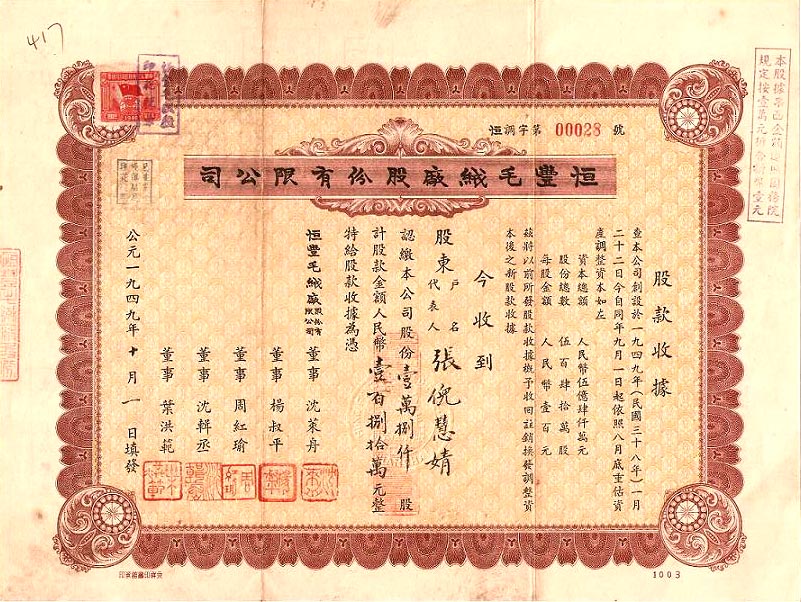 417
恒調字第 00028 號
恒豐毛絨廠股份有限公司
股款收據
查本公司創設於一九四九年(民國三十八年)一月
二十二日今自同年九月一日起依照八月底重估資
產調整資本如左
資本總額 人民幣伍億肆仟萬元
股份總數 伍百肆拾萬股
每股金額 人民幣壹百元
茲將以前所發股款收據概予收回註銷換發調整資
本後之新股款收據
今收到
股東戶名代表人 張倪慧婧
認繳本公司股份壹萬捌仟股
計股款金額人民幣壹百捌拾萬元整
特給股款收據為憑
恒豐毛絨廠股份有限公司
董事 沈萊舟
董事 楊叔平
董事 周紅瑜
董事 沈輯丞
董事 葉洪範
公元一九四九年十月一日填發
1003